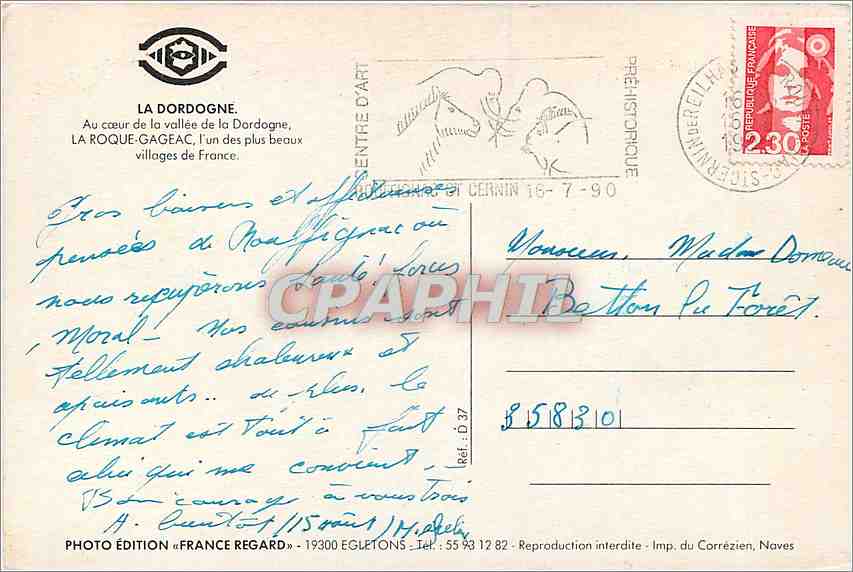 LA DORDOGNE.
Au cœur de la vallée de la Dordogne,
LA ROQUE-GAGEAC, l'un des plus beaux
villages de France.
CENTRE D'ART
PRÉHISTORIQUE
ST CERNIN 16-7-90
REPUBLIQUE FRANÇAISE
2,30
LA POSTE
Gros baisers et affectueuses
pensées de Rouffignac où
nous récupérons santé,
Moral - Nos cousins sont
tellement chaleureux et
apaisants .. de plus le
climat est tout à fait
celui qui me convient, -
Bon courage à vous trois
A bientôt (15 août)
Monsieur, Madame
Betton la Forêt.
35830
CPAPHIL
Réf.: D 37
PHOTO ÉDITION «FRANCE REGARD» - 19300 EGLETONS - Tél. : 55 93 12 82 - Reproduction interdite - Imp. du Corrézien, Naves